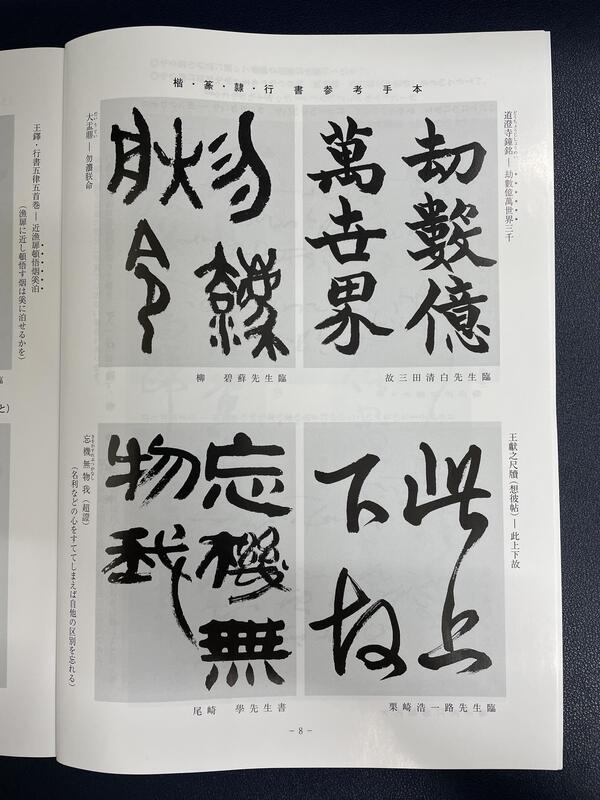 楷・篆・隷・行書参考手本
道澄寺鐘銘―劫數億萬世界三千
劫數億
萬世界
故三田清白先生臨
大盂鼎―勿灋朕命
勿灋
朕命
柳　碧蘚先生臨
王献之尺牘(想彼帖)―此上下故
此上
下故
栗崎浩一路先生臨
忘機無物我(超證)
(名利などの心をすててしまえば自他の区別を忘れる)
忘機無
物我
尾崎　學先生書
－8－
王鐸・行書五律五首巻―近漁扉頓悟烟奚泊
(漁扉に近し頓悟す烟は奚に泊せるかを)
臨
と)